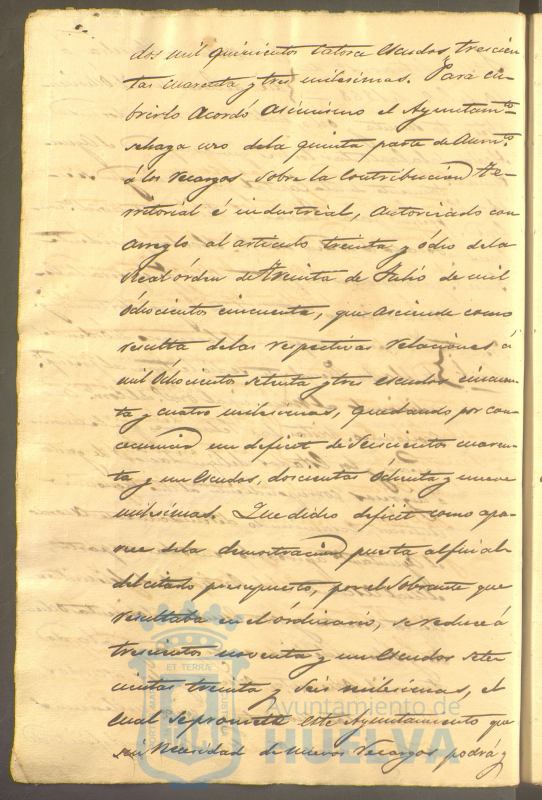 dos mil quinientos catorce escudos, trescien-
tas cuarenta y tres milesimas. Para cu-
brirlo acordó asimismo el Ayuntamto.
se haga uso de la quinta parte de aumto.
á los recargos sobre la contribucion te-
rritorial é industrial, autorizado con
arreglo al articulo treinta y ocho de la
Real órden de treinta de Julio de mil
ochocientos cincuenta, que asciende como
resulta de las respectivas relaciones á
mil ochocientos setenta y tres escudos cincuen-
ta y cuatro milesimas, quedando, por con-
secuencia un deficit de seiscientos cuaren-
ta y un escudos, doscientas ochenta y nueve
milesimas. Que dicho deficit como apa-
rece de la demostracion puesta al final
del citado presupuesto, por el sobrante que
resultaba en el órdinario, se reduce á
trescientos noventa y un escudos sete-
cientas treinta y seis milesimas, el
cual se promete este Ayuntamiento que
sin necesidad de nuevos recargos podrá y
ET TERRA
Ayuntamiento de
HUELVA